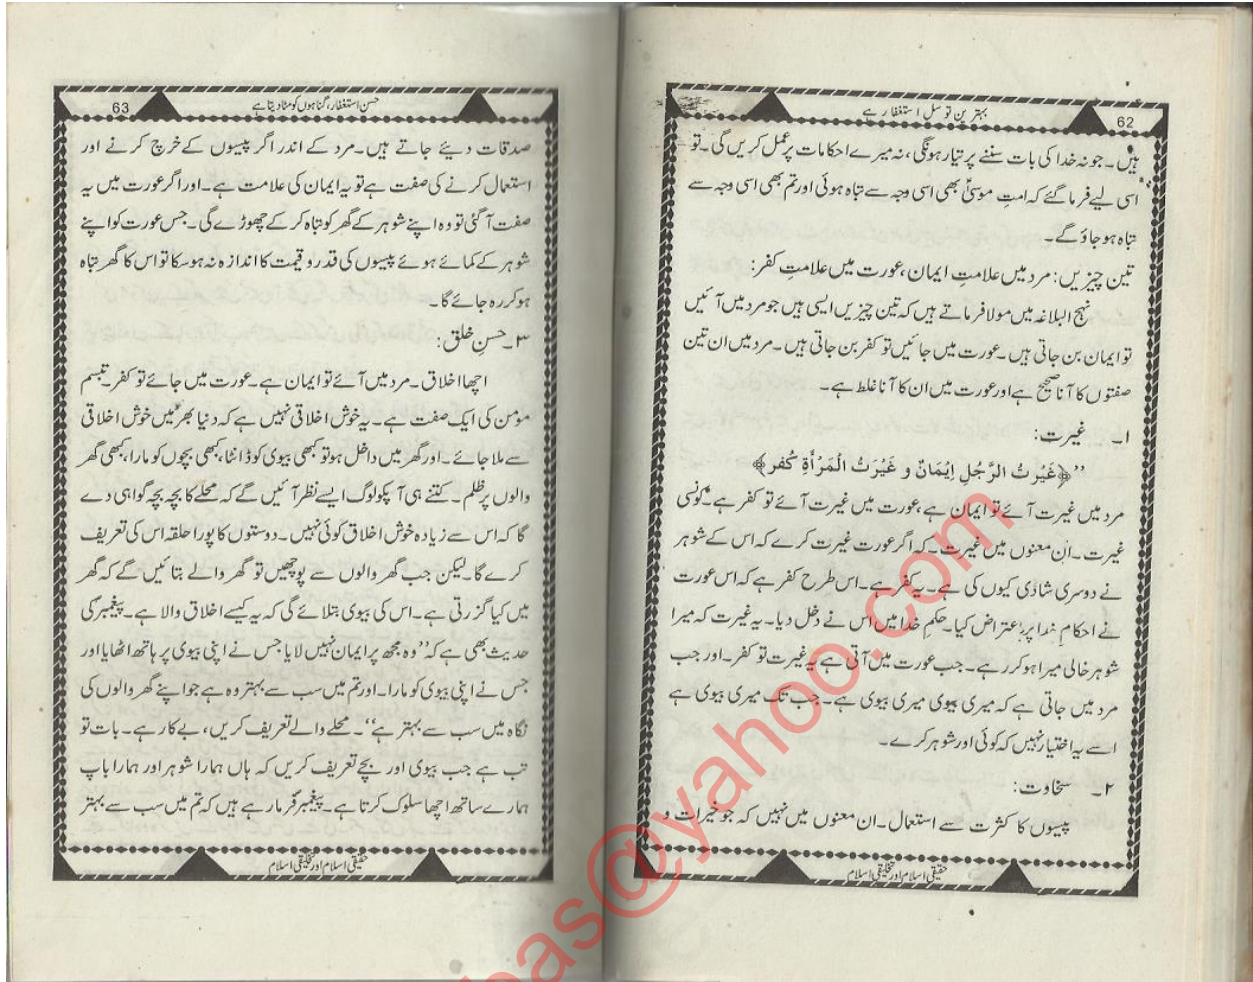 بہترین توسل استغفار ہے
62
ہیں۔ جو نہ خدا کی بات سننے پر تیار ہونگی، نہ میرے احکامات پر عمل کریں گی۔ تو
اسی لیے فرما گئے کہ امتِ موسیٰؑ بھی اسی وجہ سے تباہ ہوئی اور تم بھی اسی وجہ سے
تباہ ہو جاؤ گے۔
تین چیزیں: مرد میں علامتِ ایمان، عورت میں علامتِ کفر:
نہج البلاغہ میں مولا فرماتے ہیں کہ تین چیزیں ایسی ہیں جو مرد میں آئیں
تو ایمان بن جاتی ہیں۔ عورت میں جائیں تو کفر بن جاتی ہیں۔ مرد میں ان تین
صفتوں کا آنا صحیح ہے اور عورت میں ان کا آنا غلط ہے۔
۱۔ غیرت:
’’﴿غَیْرتُ الرَّجُلِ اِیْمَانٌ و غَیْرَتُ الْمَرْأۃِ کُفر﴾
مرد میں غیرت آئے تو ایمان ہے، عورت میں غیرت آئے تو کفر ہے۔ کونسی
غیرت۔ ان معنوں میں غیرت۔ کہ اگر عورت غیرت کرے کہ اس کے شوہر
نے دوسری شادی کیوں کی ہے۔ یہ کفر ہے۔ اس طرح کفر ہے کہ اس عورت
نے احکامِ خدا پر اعتراض کیا۔ حکمِ خدا میں اس نے دخل دیا۔ یہ غیرت کہ میرا
شوہر خالی میرا ہو کر رہے۔ جب عورت میں آتی ہے یہ غیرت تو کفر۔ اور جب
مرد میں جاتی ہے کہ میری بیوی میری بیوی ہے۔ جب تک میری بیوی ہے
اسے یہ اختیار نہیں کہ کوئی اور شوہر کرے۔
۲۔ سخاوت:
پیسوں کا کثرت سے استعمال۔ ان معنوں میں نہیں کہ جو خیرات و
حقیقی اسلام اور تخلیقی اسلام
حسن استغفار، گناہوں کو مٹا دیتا ہے
63
صدقات دیئے جاتے ہیں۔ مرد کے اندر اگر پیسوں کے خرچ کرنے اور
استعمال کرنے کی صفت ہے تو یہ ایمان کی علامت ہے۔ اور اگر عورت میں یہ
صفت آ گئی تو وہ اپنے شوہر کے گھر کو تباہ کر کے چھوڑے گی۔ جس عورت کو اپنے
شوہر کے کمائے ہوئے پیسوں کی قدر و قیمت کا اندازہ نہ ہو سکا تو اس کا گھر تباہ
ہو کر رہ جائے گا۔
۳۔ حسنِ خلق:
اچھا اخلاق۔ مرد میں آئے تو ایمان ہے۔ عورت میں جائے تو کفر۔ تبسم
مؤمن کی ایک صفت ہے۔ یہ خوش اخلاقی نہیں ہے کہ دنیا بھر میں خوش اخلاقی
سے ملا جائے۔ اور گھر میں داخل ہو تو کبھی بیوی کو ڈانٹا، کبھی بچوں کو مارا، کبھی گھر
والوں پر ظلم۔ کتنے ہی آپکو لوگ ایسے نظر آئیں گے کہ محلے کا بچہ بچہ گواہی دے
گا کہ اس سے زیادہ خوش اخلاق کوئی نہیں۔ دوستوں کا پورا حلقہ اس کی تعریف
کرے گا۔ لیکن جب گھر والوں سے پوچھیں تو گھر والے بتائیں گے کہ گھر
میں کیا گزرتی ہے۔ اس کی بیوی بتلائے گی کہ یہ کیسے اخلاق والا ہے۔ پیغمبرؐ کی
حدیث بھی ہے کہ ’’وہ مجھ پر ایمان نہیں لایا جس نے اپنی بیوی پر ہاتھ اٹھایا اور
جس نے اپنی بیوی کو مارا۔ اور تم میں سب سے بہتر وہ ہے جو اپنے گھر والوں کی
نگاہ میں سب سے بہتر ہے‘‘۔ محلے والے تعریف کریں، بے کار ہے۔ بات تو
تب ہے جب بیوی اور بچے تعریف کریں کہ ہاں ہمارا شوہر اور ہمارا باپ
ہمارے ساتھ اچھا سلوک کرتا ہے۔ پیغمبرؐ فرما رہے ہیں کہ تم میں سب سے بہتر
حقیقی اسلام اور تخلیقی اسلام
bas@yahoo.com